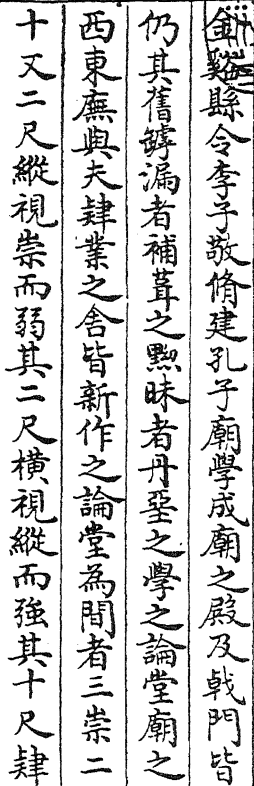 金谿縣令李子敬脩建孔子廟學成廟之殿及戟門皆
仍其舊罅漏者補葺之黝昧者丹堊之學之論堂廟之
西東廡與夫肄業之舍皆新作之論堂為間者三崇二
十又二尺縱視崇而弱其二尺橫視縱而強其十尺肄